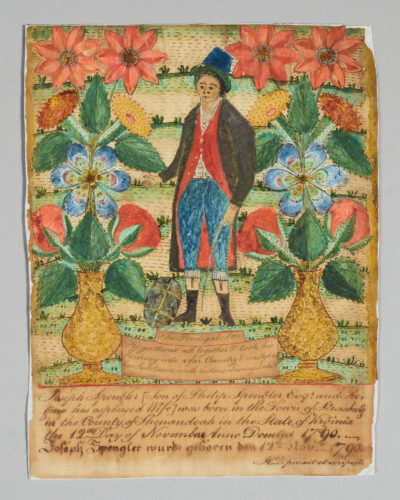 The Prodigal Son
gathered all together & took his
Journey into a far Country & wasted his
Substance with riotous living
Joseph Spengler [Son of Philip Spengler Esqr. and Re-
gina his espoused Wife] was born in the Town of Strasburg
in the County of Shenandoah in the State of Virginia
the 12th Day of November Anno Domini 1790.
Joseph Spengler wurde geboren den 12ten Nov. 1790